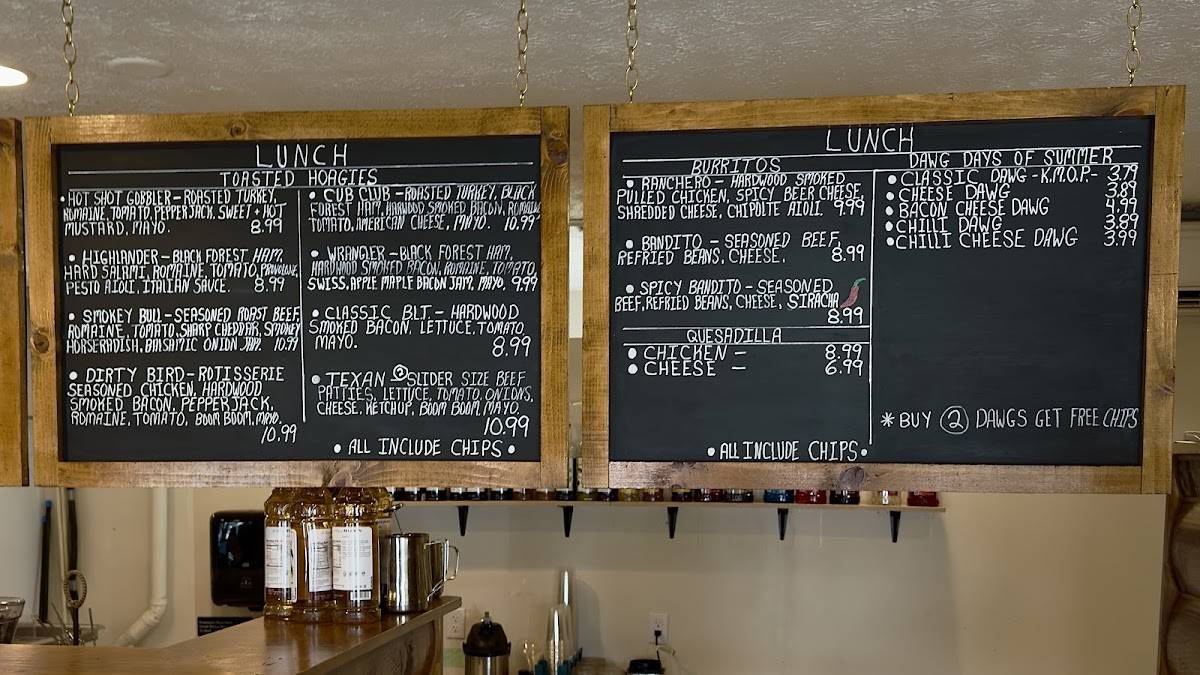 LUNCH
TOASTED HOAGIES
• HOT SHOT GOBBLER - ROASTED TURKEY,
ROMAINE, TOMATO, PEPPERJACK, SWEET + HOT
MUSTARD, MAYO. 8.99
• HIGHLANDER - BLACK FOREST HAM,
HARD SALAMI, ROMAINE, TOMATO, PROVOLONE,
PESTO AIOLI, ITALIAN SAUCE. 8.99
• SMOKEY BULL - SEASONED ROAST BEEF,
ROMAINE, TOMATO, SHARP CHEDDAR, SMOKEY
HORSERADISH, BALSAMIC ONION JAM. 10.99
• DIRTY BIRD - ROTISSERIE
SEASONED CHICKEN, HARDWOOD
SMOKED BACON, PEPPERJACK,
ROMAINE, TOMATO, BOOM BOOM, MAYO.
10.99
• CUB CLUB - ROASTED TURKEY, BLACK
FOREST HAM, HARDWOOD SMOKED BACON, ROMAINE
TOMATO, AMERICAN CHEESE, MAYO. 10.99
• WRANGLER - BLACK FOREST HAM,
HARDWOOD SMOKED BACON, ROMAINE, TOMATO,
SWISS, APPLE MAPLE BACON JAM, MAYO. 9.99
• CLASSIC BLT. - HARDWOOD
SMOKED BACON, LETTUCE, TOMATO
MAYO. 8.99
• TEXAN - ② SLIDER SIZE BEEF
PATTIES, LETTUCE, TOMATO, ONIONS,
CHEESE, KETCHUP, BOOM BOOM, MAYO.
10.99
• ALL INCLUDE CHIPS •
LUNCH
BURRITOS
• RANCHERO - HARDWOOD SMOKED
PULLED CHICKEN, SPICY BEER CHEESE,
SHREDDED CHEESE, CHIPOLTE AIOLI. 9.99
• BANDITO - SEASONED BEEF,
REFRIED BEANS, CHEESE. 8.99
• SPICY BANDITO - SEASONED
BEEF, REFRIED BEANS, CHEESE, SIRACHA
8.99
QUESADILLA
• CHICKEN - 8.99
• CHEESE - 6.99
• ALL INCLUDE CHIPS •
DAWG DAYS OF SUMMER
• CLASSIC DAWG - K.M.O.P. - 3.79
• CHEESE DAWG 3.89
• BACON CHEESE DAWG 4.99
• CHILLI DAWG 3.89
• CHILLI CHEESE DAWG 3.99
* BUY ② DAWGS GET FREE CHIPS